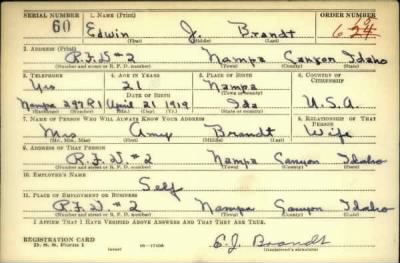 SERIAL NUMBER 1. NAME (Print) ORDER NUMBER
60 Edwin J. Brandt
(First) (Middle) (Last)
2. ADDRESS (Print)
R.F.D. #2 Nampa Canyon Idaho
(Number and street or R. F. D. number) (Town) (County) (State)
3. TELEPHONE 4. AGE IN YEARS 5. PLACE OF BIRTH 6. COUNTRY OF CITIZENSHIP
Yes 21 Nampa
DATE OF BIRTH
Nampa 297R1 April 21 1919 Ida U.S.A.
7. NAME OF PERSON WHO WILL ALWAYS KNOW YOUR ADDRESS 8. RELATIONSHIP OF THAT PERSON
Mrs Amy Brandt Wife
(Mr., Mrs., Miss) (First) (Middle) (Last)
9. ADDRESS OF THAT PERSON
R.F.D. #2 Nampa Canyon Idaho
(Number and street or R. F. D. number) (Town) (County) (State)
10. EMPLOYER'S NAME
Self
11. PLACE OF EMPLOYMENT OR BUSINESS
R.F.D. #2 Nampa Canyon Idaho
(Number and street or R. F. D. number) (Town) (County) (State)
I AFFIRM THAT I HAVE VERIFIED ABOVE ANSWERS AND THAT THEY ARE TRUE.
REGISTRATION CARD
D. S. S. Form 1 E. J. Brandt
(Registrant's signature)